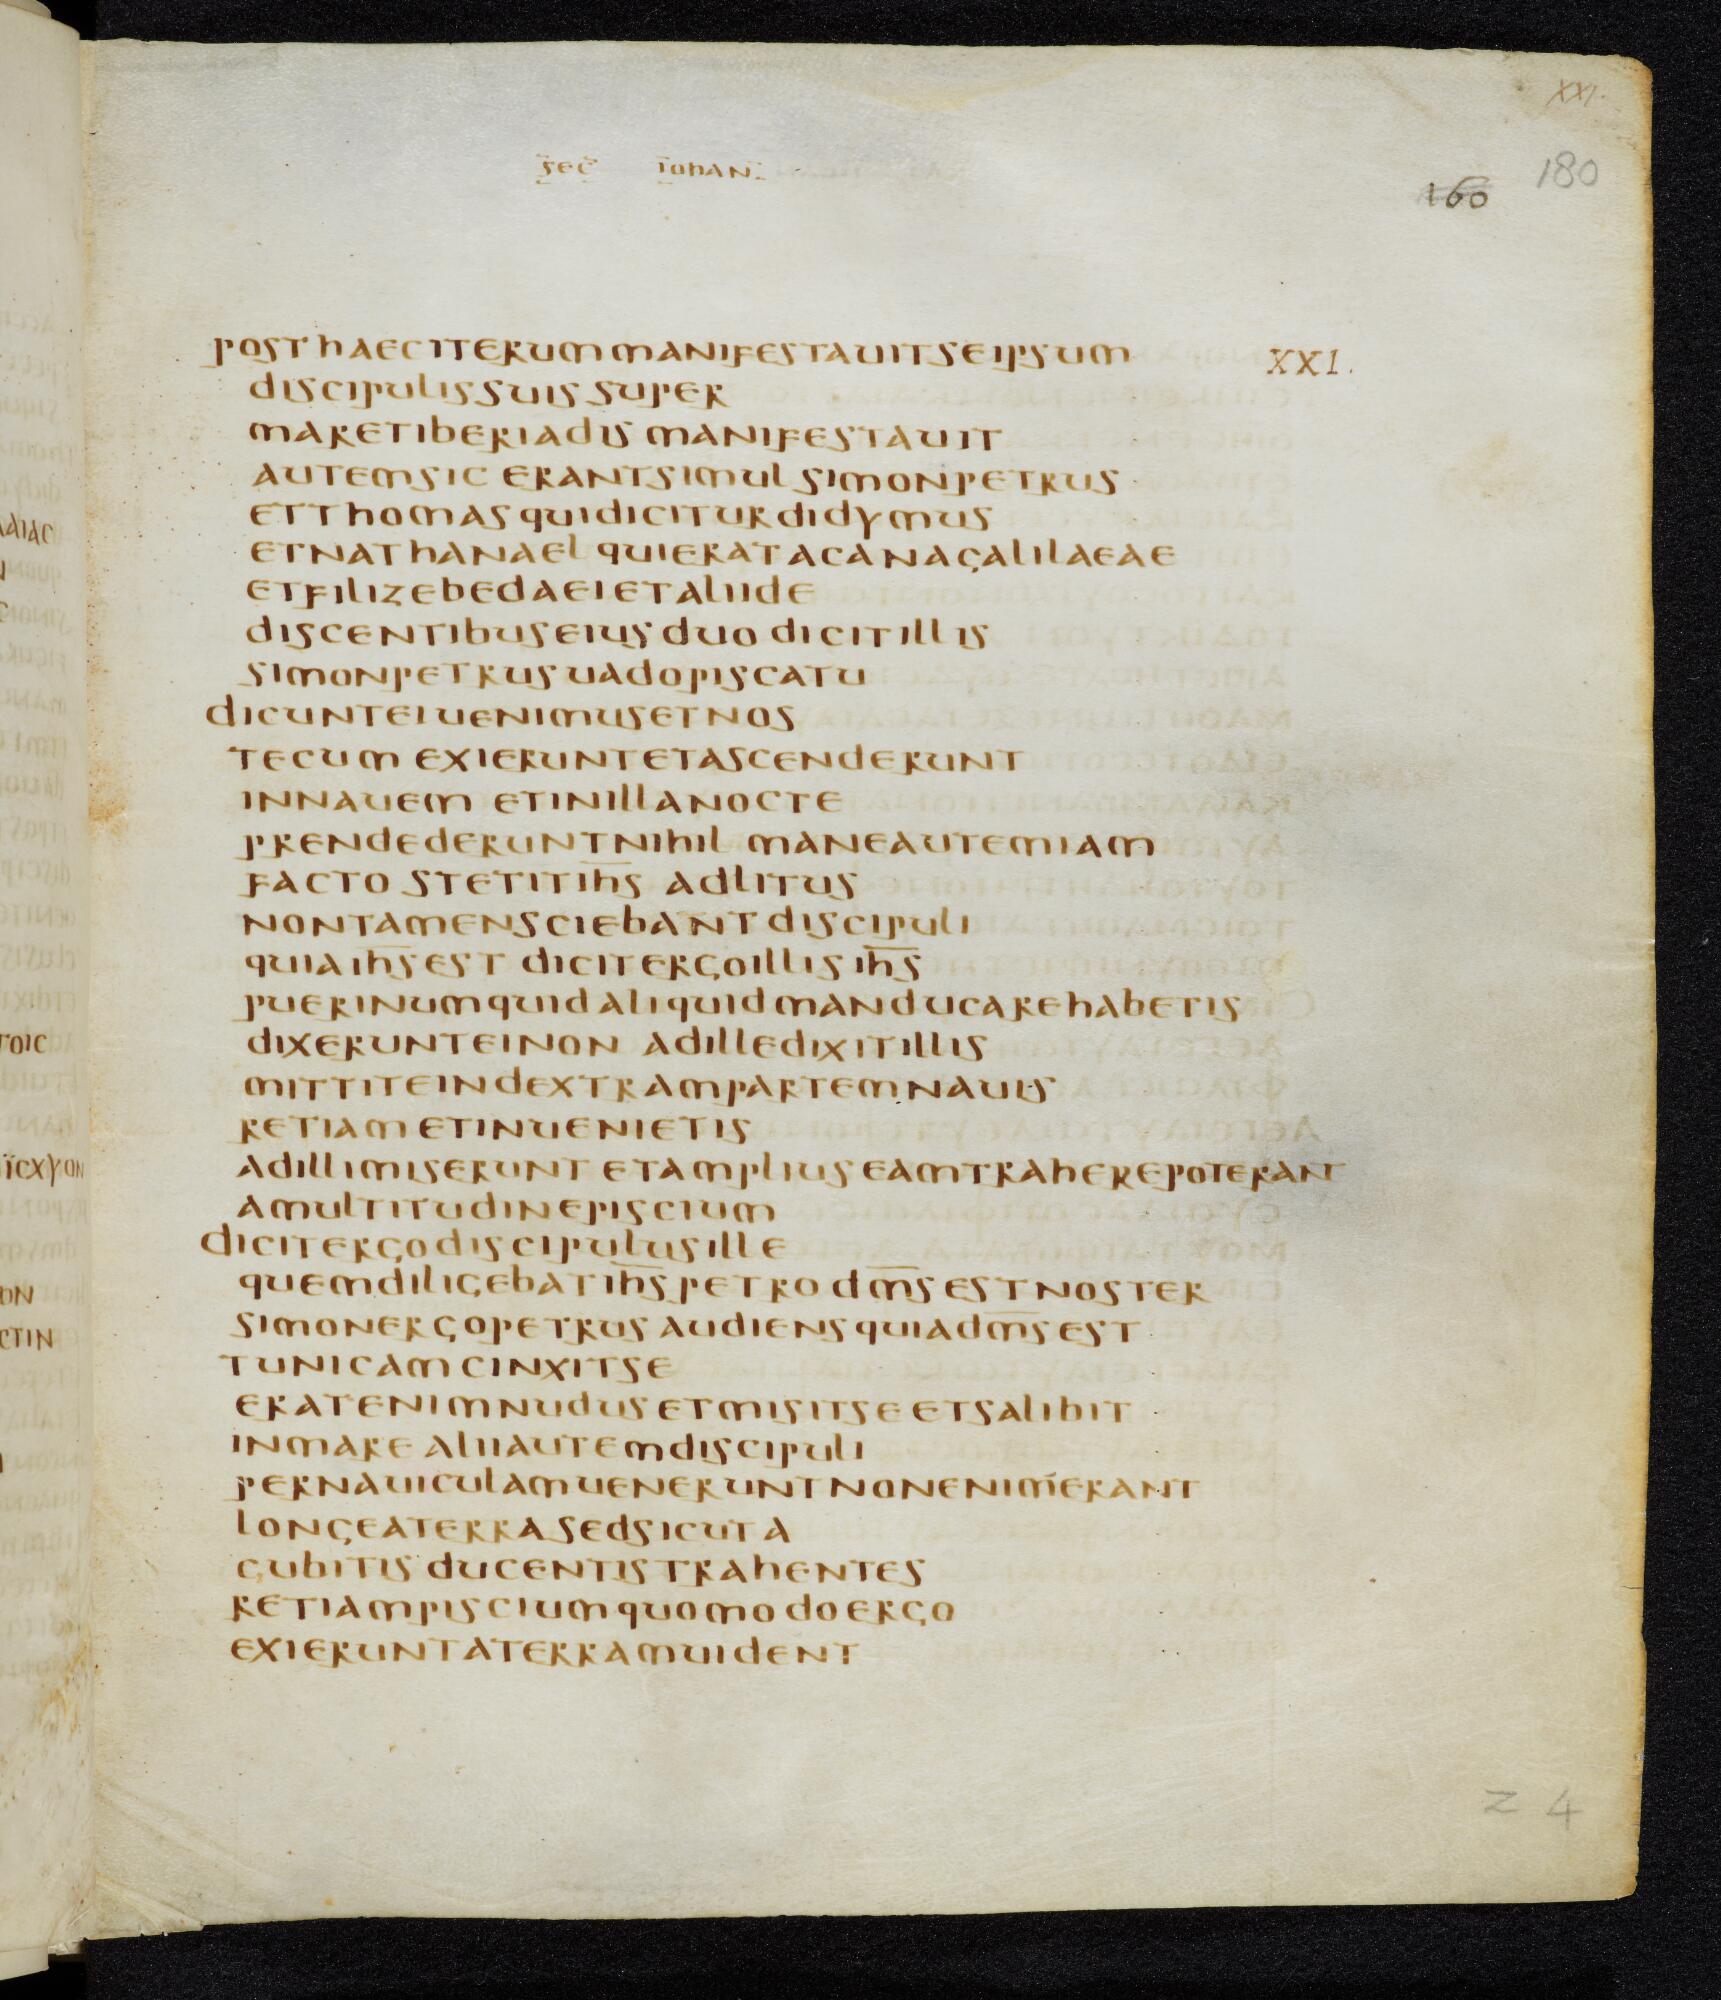 XXI.
sec iohan
160 180
post haec iterum manifestauit se ipsum XXI.
discipulis suis super
mare tiberiadis manifestauit
autem sic erant simul simon petrus
et thomas qui dicitur didymus
et nathanael qui erat a cana galilaeae
et fili zebedaei et alii de
discentibus eius duo dicit illis
simon petrus uado piscatu
dicunt ei uenimus et nos
tecum exierunt et ascenderunt
in nauem et in illa nocte
prendederunt nihil mane autem iam
facto stetit ih̅s ad litus
non tamen sciebant discipuli
quia ih̅s est dicit ergo illis ih̅s
pueri numquid aliquid manducare habetis
dixerunt ei non ad ille dixit illis
mittite in dextram partem nauis
retiam et inuenietis
ad illi miserunt et amplius eam trahere poterant
a multitudine piscium
dicit ergo discipulus ille
quem diligebat ih̅s petro dm̅s est noster
simon ergo petrus audiens quia dm̅s est
tunicam cinxit se
erat enim nudus et misit se et salibit
in mare alii autem discipuli
per nauiculam uenerunt non enim erant
longe a terra sed sicut a
cubitis ducentis trahentes
retiam piscium quomodo ergo
exierunt a terram uident
z 4